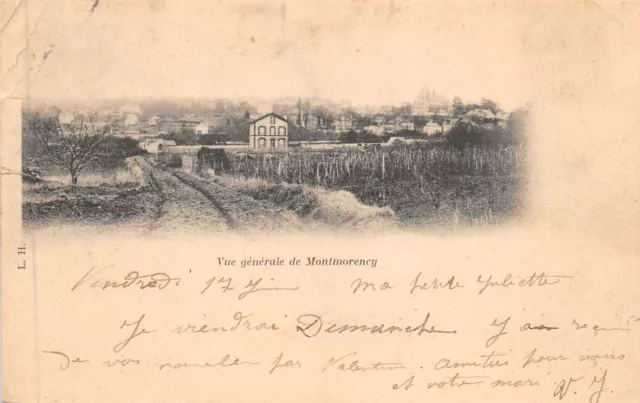 Vue générale de Montmorency
L. H.
Vendredi 17 Juin ma petite Juliette
Je viendrai Dimanche J'ai reçu
de vos nouvelles par Valentin. Amitiés pour vous
et votre mari V. J.